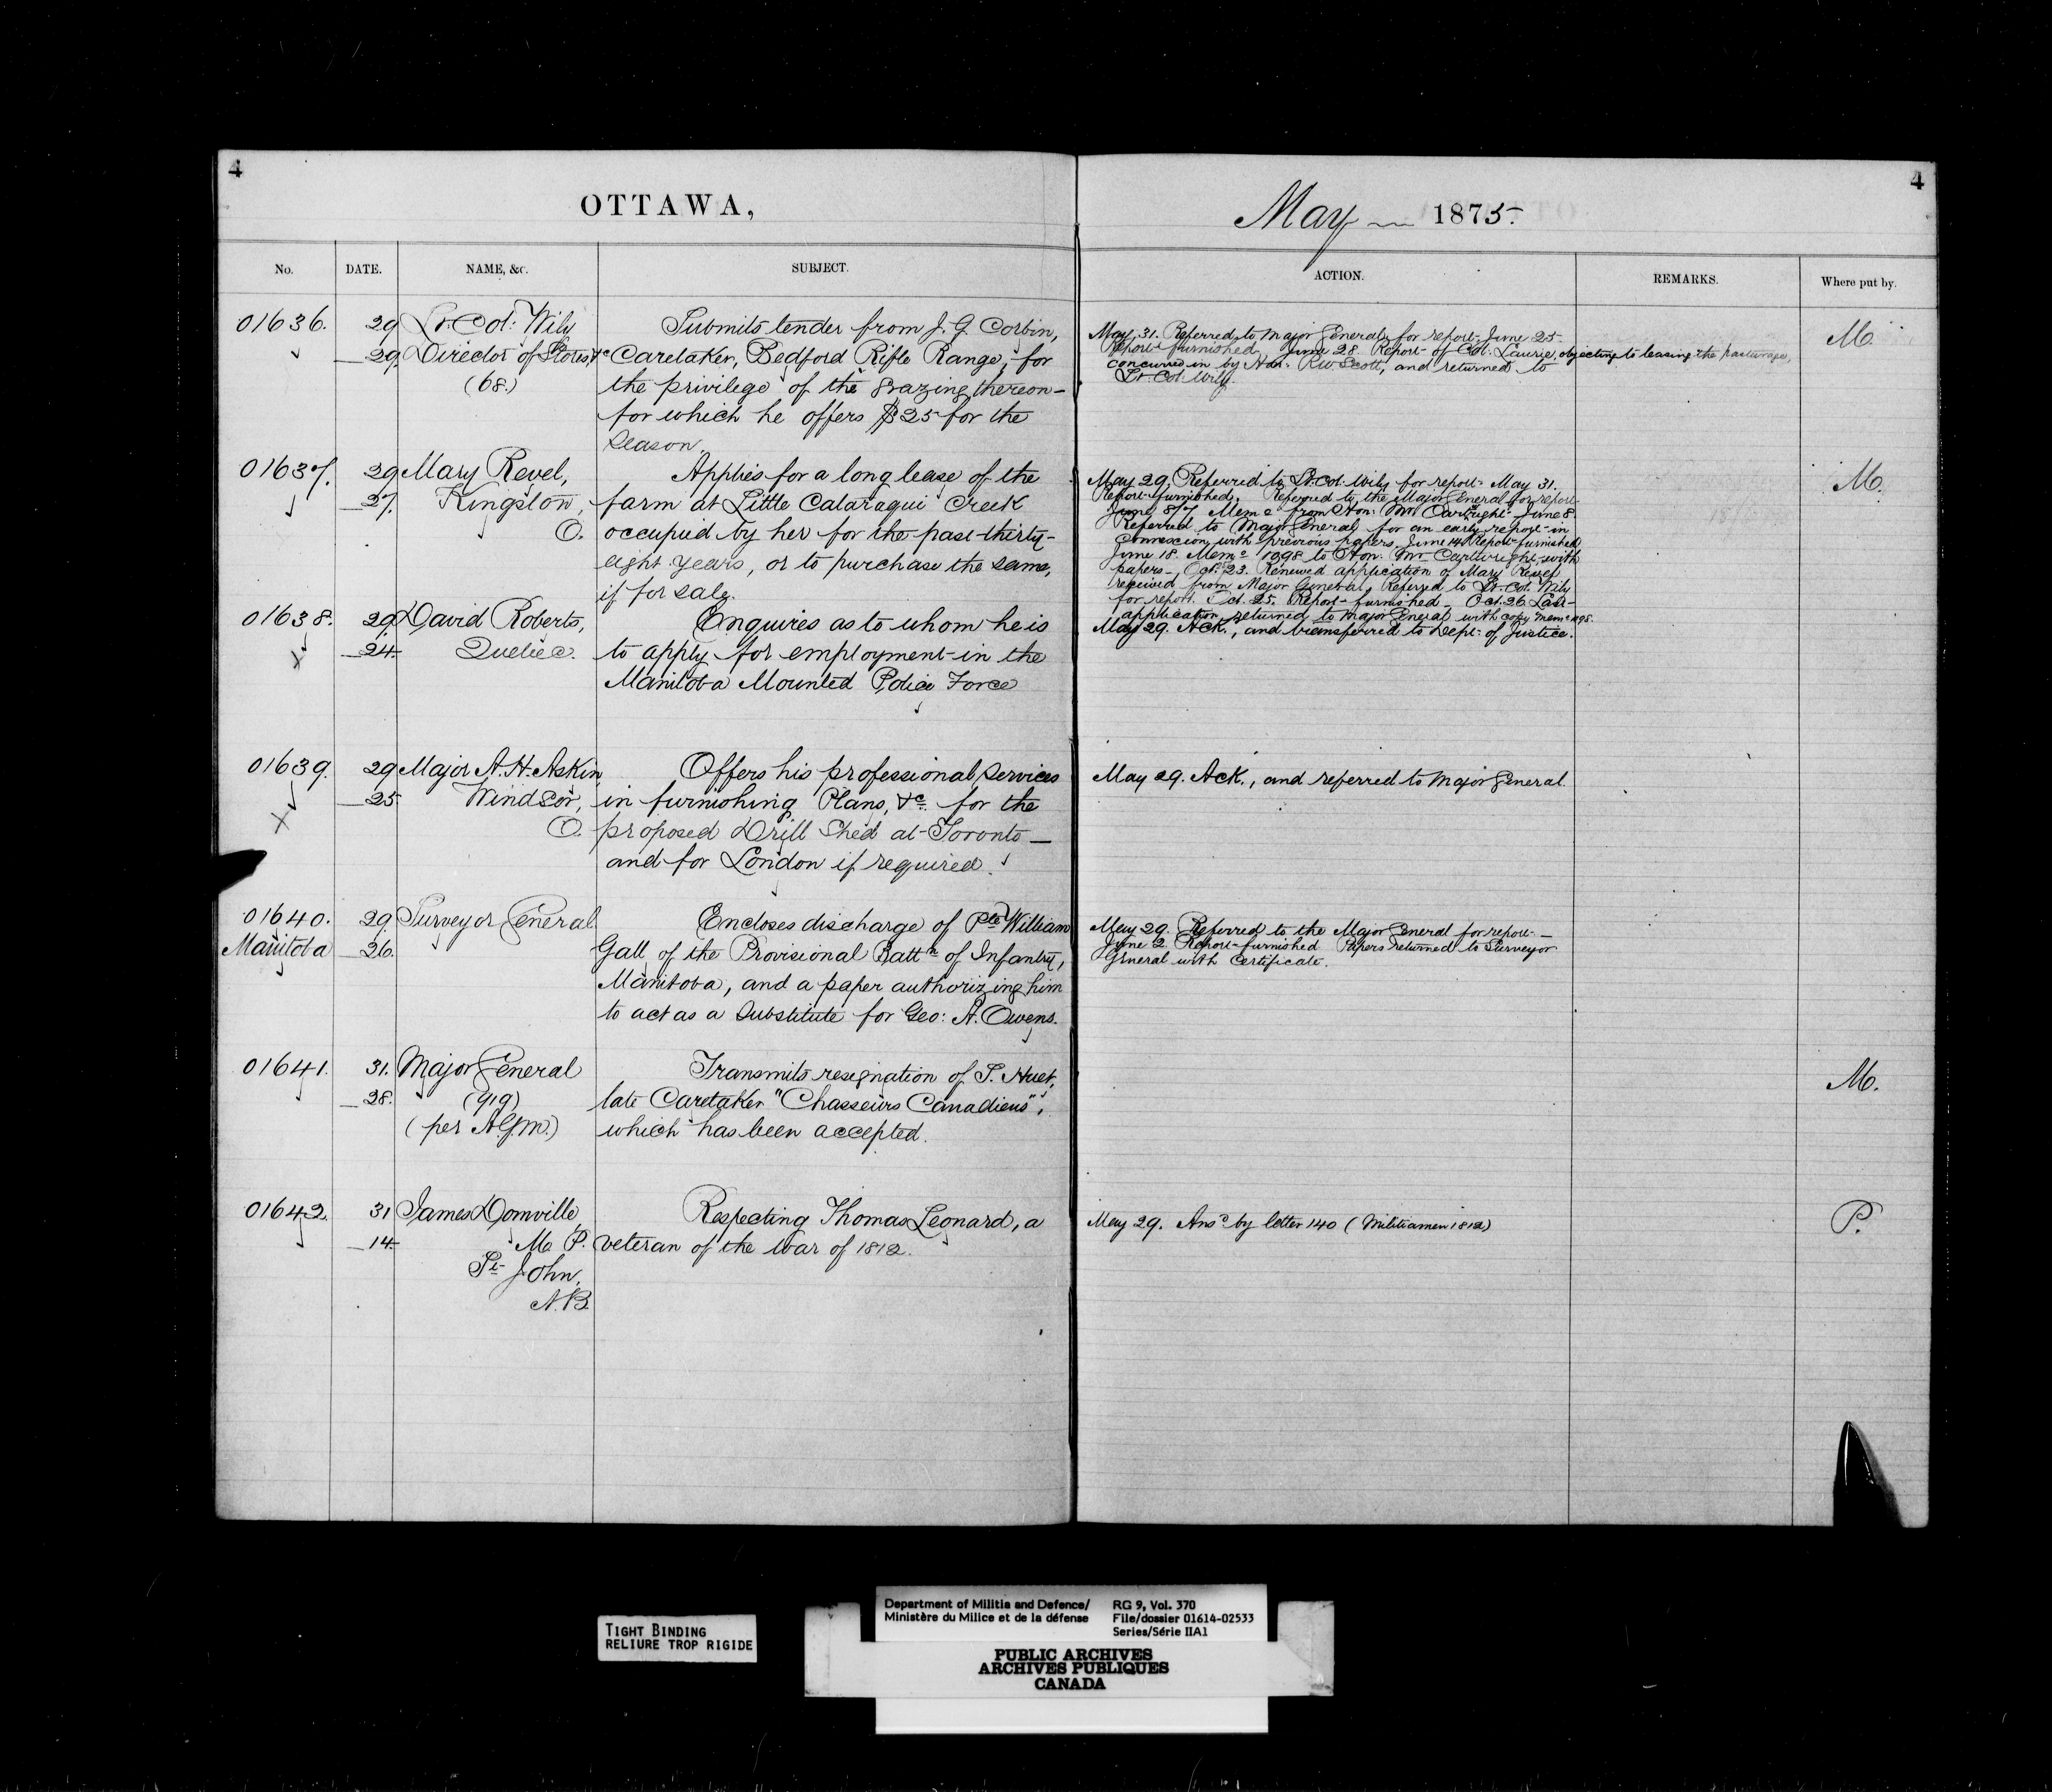 4
OTTAWA,
No. DATE. NAME, &c. SUBJECT.
01636. 29 Lt. Col: Wily Submits tender from J. G. Corbin,
29 Director of Stores, &c Caretaker, Bedford Rifle Range, for
(68.) the privilege of the grazing thereon-
for which he offers $25 for the
season.
01637. 29 Mary Revel, Applies for a long lease of the
27. Kingston, farm at Little Cataraqui Creek
O. occupied by her for the past thirty-
eight years, or to purchase the same,
if for sale.
01638. 29. David Roberts, Enquires as to whom he is
24. Quebec. to apply for employment in the
Manitoba Mounted Police Force
01639. 29 Major A. H. Askin Offers his professional services
25 Windsor, in furnishing Plans, &c. for the
O. proposed Drill Shed at Toronto —
and for London if required.
01640. 29. Surveyor General Encloses discharge of Pte William
Manitoba 26. Gall of the Provisional Battn of Infantry,
Manitoba, and a paper authorizing him
to act as a Substitute for Geo: A. Owens.
01641. 31. Major General Transmits resignation of P. Huet,
28. (919) late Caretaker "Chasseurs Canadiens",
(per A.G.M.) which has been accepted.
01642. 31 James Domville, Respecting Thomas Leonard, a
14. M. P. veteran of the War of 1812.
St John,
N.B.
4
May 1875.
ACTION. REMARKS. Where put by.
May 31. Referred to Major General for report. June 25 M.
report furnished. June 28. Report of Col. Laurie, objecting to leasing the pasturage,
concurred in by Hon: R.W. Scott, and returned to
Lt. Col. Wily.
May 29. Referred to Lt. Col. Wily for report. May 31. M.
Report furnished. Referred to the Major General for report
June 8/7 Memo from Hon: Mr Cartwright. June 8.
Referred to Major General for an early report in
Connexion with previous papers. June 14 Report furnished
June 18. Memo 1098 to Hon: Mr Cartwright with
papers — Oct. 23. Renewed application of Mary Revel
received from Major General. Referred to Lt. Col. Wily
for report. Oct. 25. Report furnished — Oct. 26 Last
application returned to Major General with copy Memo 1098.
May 29. Ack., and transferred to Dept. of Justice.
May 29. Ack., and referred to Major General.
May 29. Referred to the Major General for report —
June 2. Report furnished Papers returned to Surveyor
General with Certificate.
M.
May 29. Ansd by letter 140 (Militiamen 1812) P.
TIGHT BINDING
RELIURE TROP RIGIDE
Department of Militia and Defence/
Ministère du Milice et de la défense
RG 9, Vol. 370
File/dossier 01614-02533
Series/Série IIA1
PUBLIC ARCHIVES
ARCHIVES PUBLIQUES
CANADA